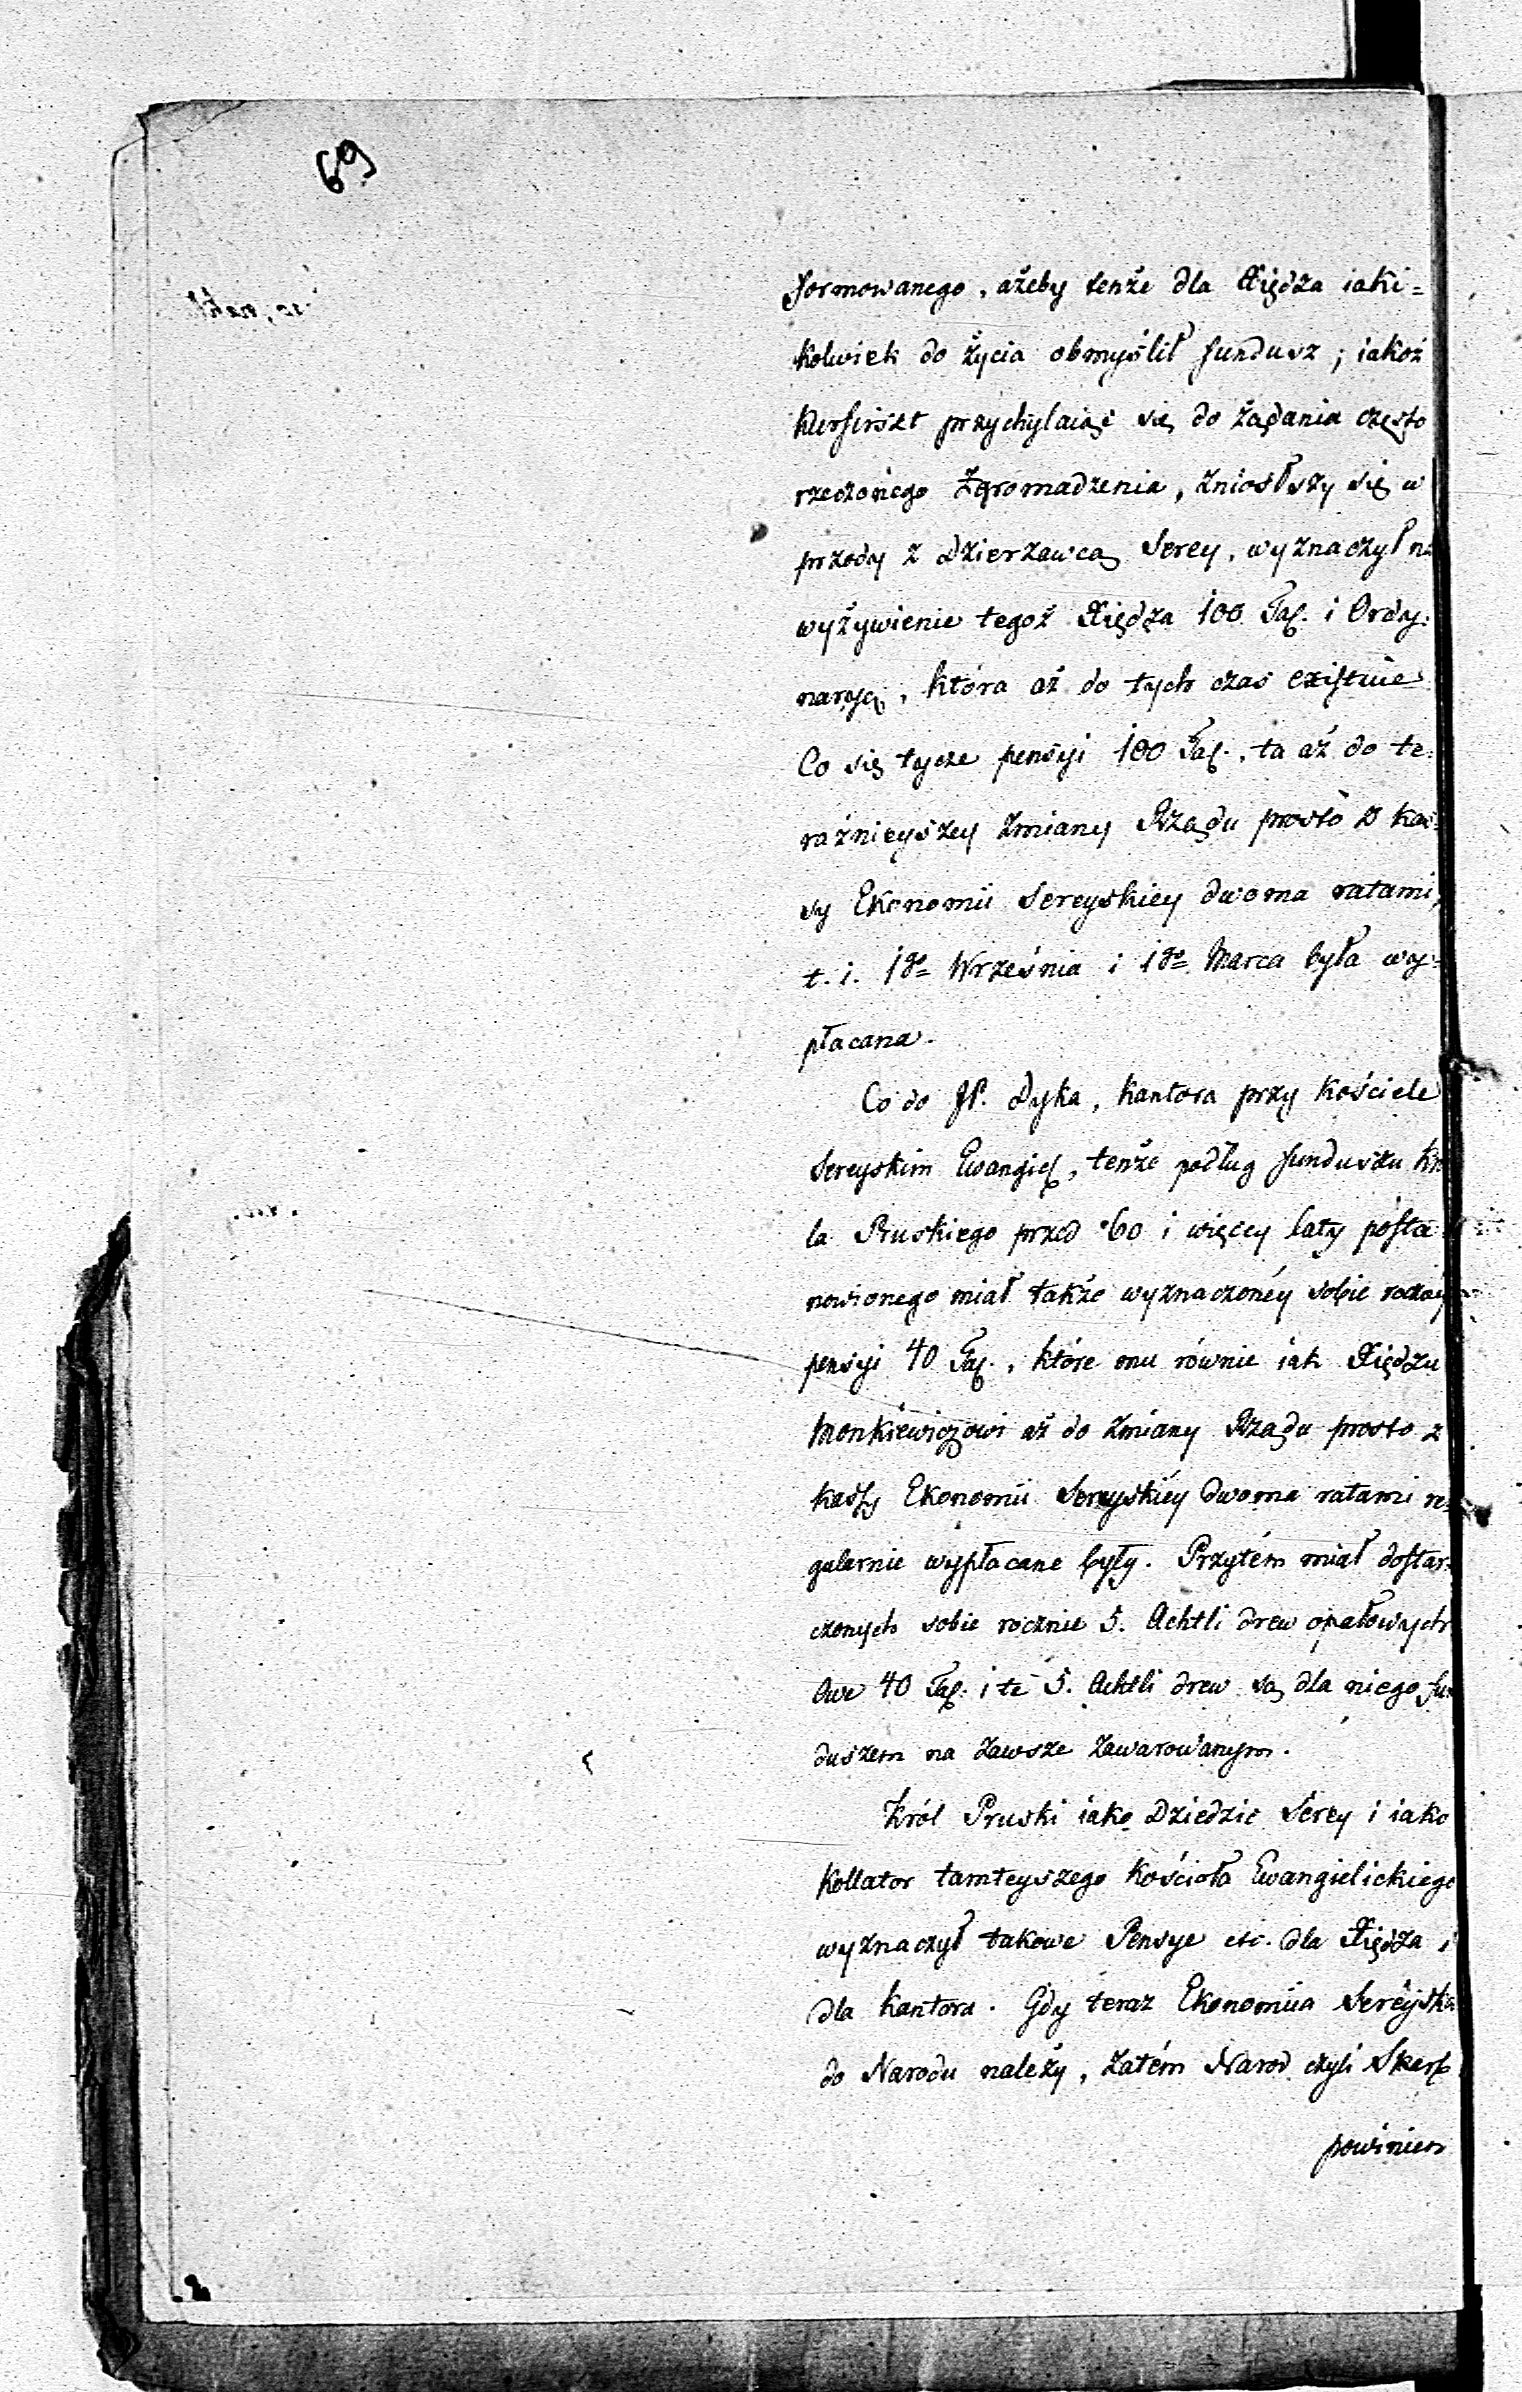 69
formowanego, ażeby tenże dla Xiędza iaki=
kolwiek do życia obmyślił fundusz; iakoż
Kurfirszt przychylaiąć się do żądania często
rzeczonego Zgromadzenia, zniosłszy się w
przody z Dzierzawcą Serey, wyznaczył na
wyżywienie tegoż Xiędza 100 Tal. i Ordy:
naryą, która aż do tych czas existuie
Co się tycze pensyi 100 Tal., ta aż do te:
raźnieyszey zmiany Rządu prosto z kas:
sy Ekonomii Sereyskiey dwoma ratami,
t. i. 1go Września i 1go Marca była wy=
płacana.
Co do JP. Dyka, kantora przy kościele
Sereyskim Ewangiel, tenże podług funduszu
la Pruskiego przed 60 i więcey laty posta
nowionego miał także wyznaczonéy sobie
pensyi 40 Tal., które mu równie iak Xiędzu
Monkiewiczowi aż do zmiany Rządu prosto z
kassy Ekonomii Sereyskiéy dwoma ratami re
gularnie wypłacane były. Przytém miał dostar:
czonych sobie rocznie 5. Achtli drew opałowych
Owe 40 Tal. i te 5. Achtli drew są dla niego fun
duszem na zawsze zawarowanym.
Król Pruski iako Dziedzic Serey i iako
Kollator tamteyszego Kościoła Ewangielickiego
wyznaczył takowe Pensye etc. dla Xiędza i
dla Kantora. Gdy teraz Ekonomiia Sereyska
do Narodu należy, zatém Narod czyli Skarb
powinien